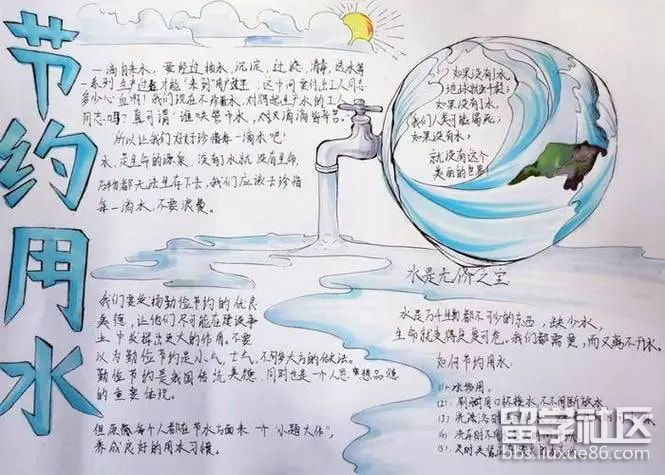 节约用水
一滴自来水，要经过抽水，沉淀，过滤，消毒，送水等
一系列生产过程才能"来到"用户家里
多少心血啊！我们现在不珍惜水，对得起生产水的工人
同志吗？真可谓"谁知管中水，对对滴滴皆辛苦。
所以让我们好好珍惜每一滴水吧！
水，是生命的源泉，没有水就没有生命，
万物都无法生存下去，我们应该去珍惜
每一滴水，不要浪费。
如果没有水，
地球就会干裂；
如果没有水，
我们人类可能渴死；
如果没有水，
就没有这个
美丽的世界！
水是无价之宝
我们要发扬勤俭节约的优良
美德，让他们尽可能在建设事
业中发挥出更大的作用。不要
以为勤俭节约是小气，土气，不够大方的做法。
勤俭节约是我国传统美德，同时也是一个人思想品德
的重要体现。
但愿每个人都在节水方面来一个"小题大作"，
养成良好的用水习惯。
水是万生物都不可少的东西，缺少水，
生命就变得岌岌可危，我们都需要，而又离不开水。
如何节约用水
(1)一水物用。
(2)刷牙用口杯接水，不不用断放水
(3)洗
(4)洗
(5)及时关
留学社区
bbs.liuxue86.com